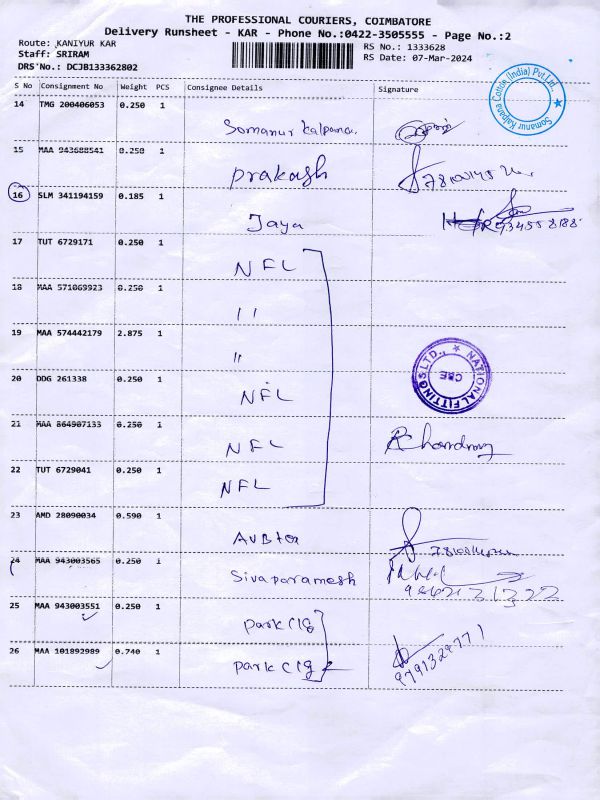 THE PROFESSIONAL COURIERS, COIMBATORE
Delivery Runsheet - KAR - Phone No.:0422-3505555 - Page No.:2
Route: KANIYUR KAR
RS No.: 1333628
Staff: SRIRAM
RS Date: 07-Mar-2024
DRS No.: DCJB133362802
S No Consignment No Weight PCS Consignee Details Signature
Somanur Kalpana Cotton (India) Pvt Ltd.
14 TMG 200406053 0.250 1
Somanur Kalpana
15 MAA 943688541 0.250 1
Prakash
16 SLM 341194159 0.185 1
Jaya
17 TUT 6729171 0.250 1
NFL
18 MAA 571069923 0.250 1
''
19 MAA 574442179 2.875 1
''
20 DDG 261338 0.250 1
NFL
NATIONAL FITTINGS LTD., CBE
21 MAA 864907133 0.250 1
NFL
22 TUT 6729041 0.250 1
NFL
23 AMD 28090034 0.590 1
24 MAA 943003565 0.250 1
Sivaparamesh
25 MAA 943003551 0.250 1
Park Clg
26 MAA 101892989 0.740 1
Park Clg